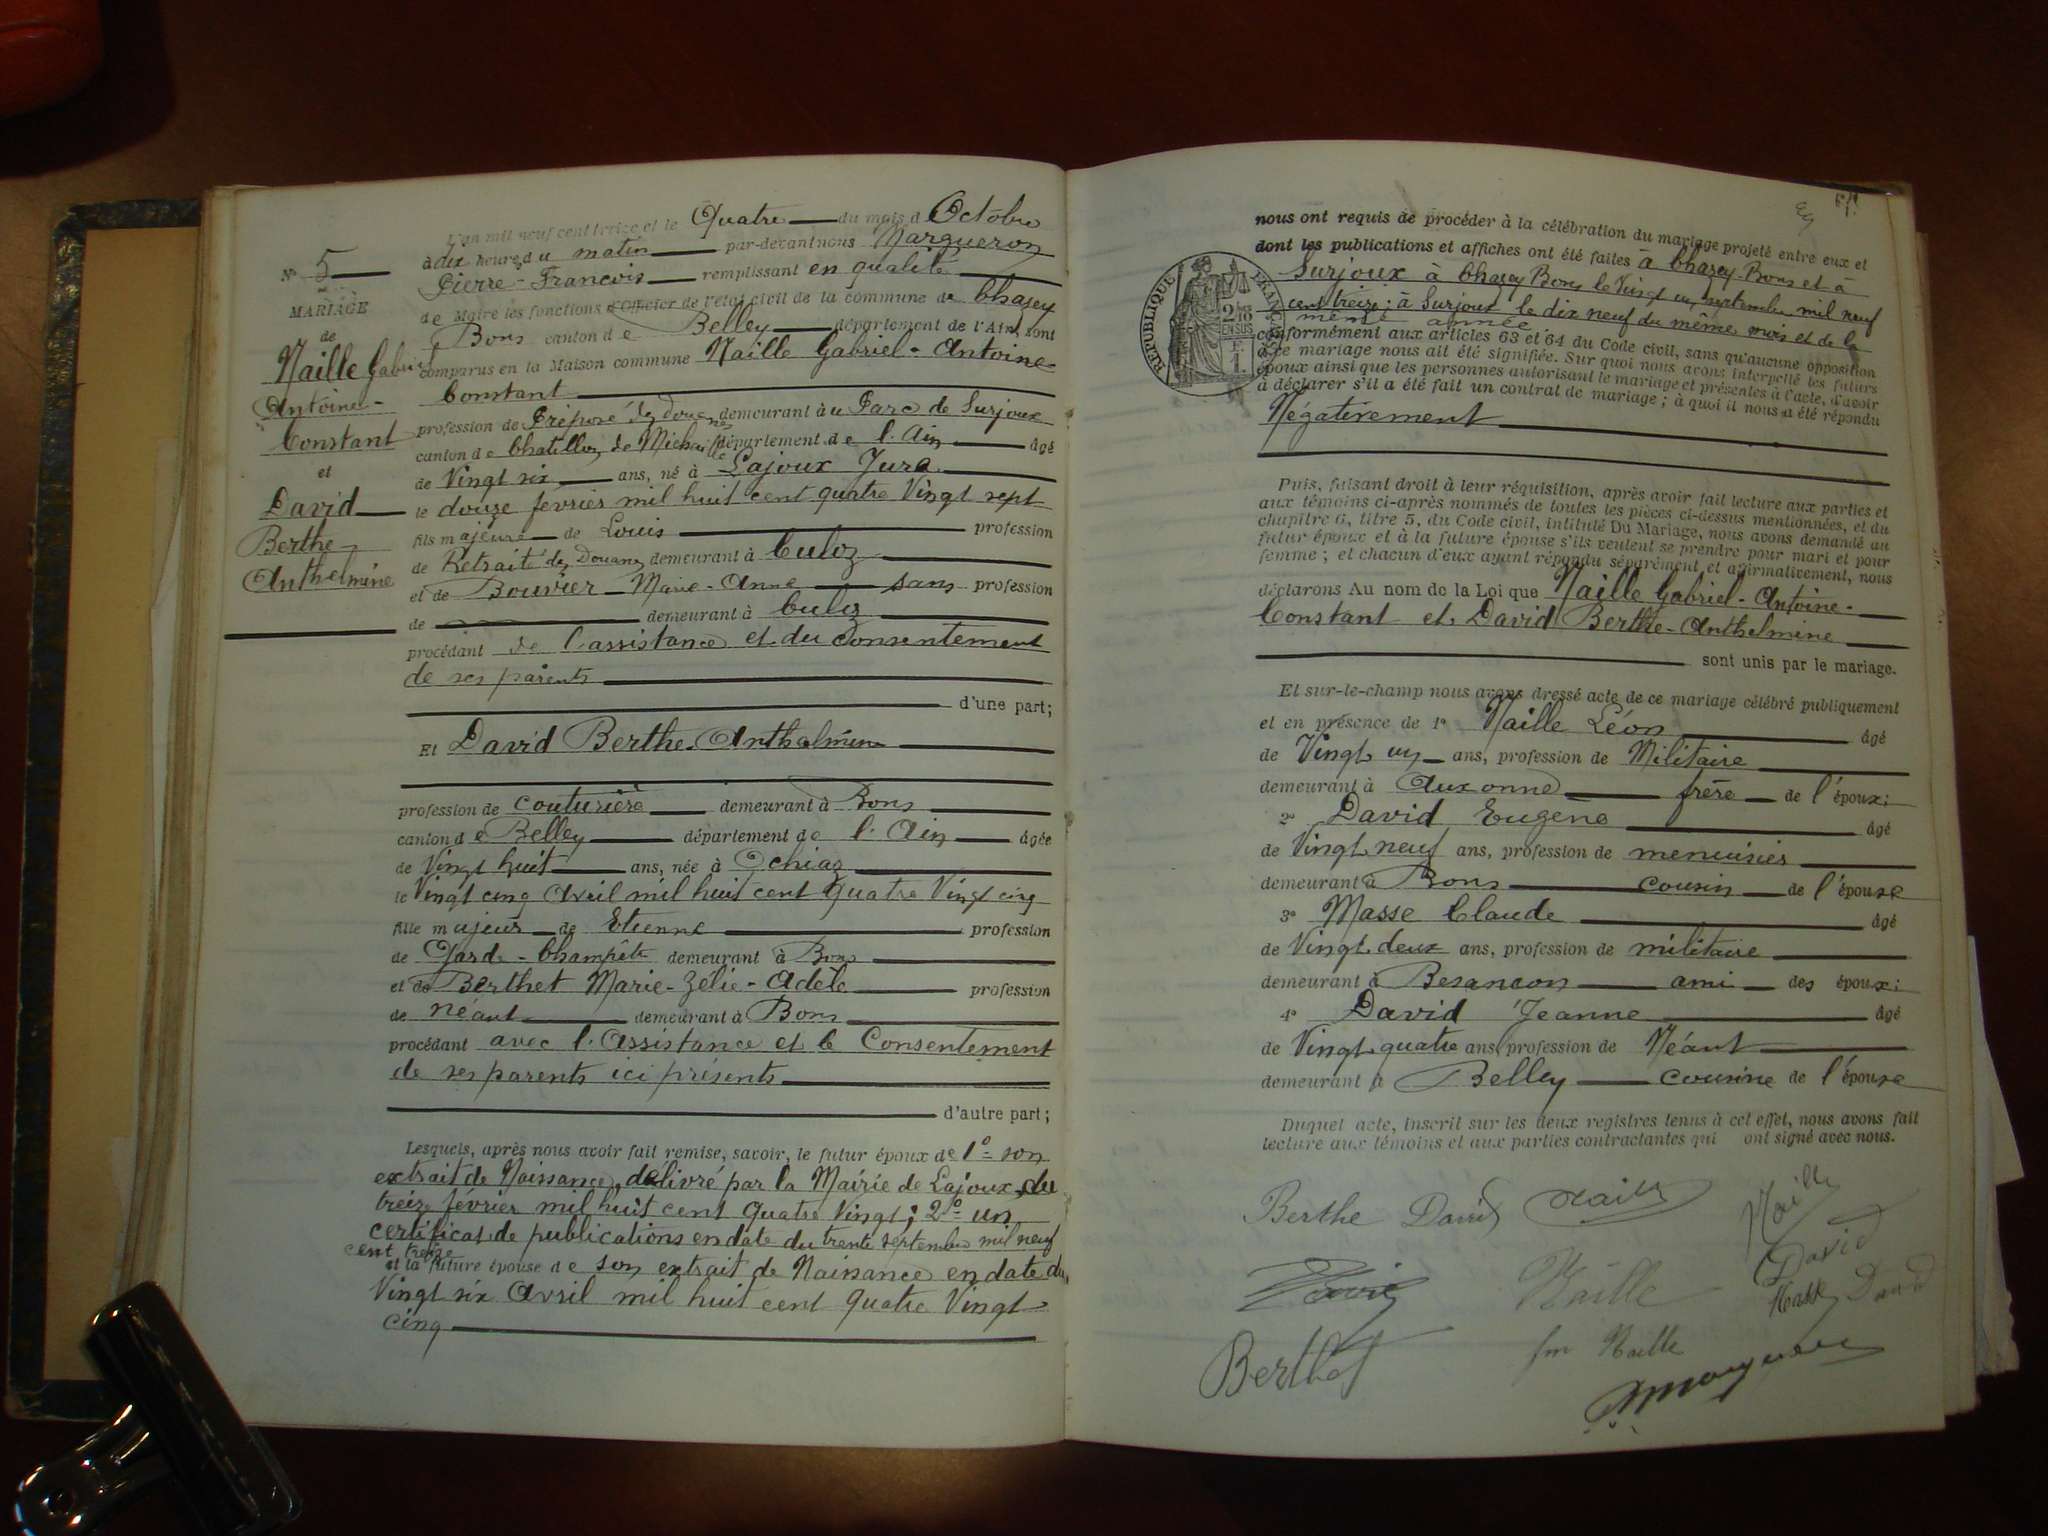 L'an mil neuf cent treize et le Quatre du mois d Octobre
à dix heure du matin par-devant nous Margueron
Pierre-François remplissant en qualité
de Maire les fonctions d'Officier de l'état civil de la commune de Chazey
Bons canton de Belley département de l'Ain, sont
comparus en la Maison commune Naille Gabriel-Antoine
Constant
profession de Préposé des douanes demeurant au Parc de Surjoux
canton de Chatillon de Michaille département de l'Ain âgé
de Vingt six ans, né à Lajoux Jura
le douze fevrier mil huit cent quatre Vingt sept
fils majeur de Louis profession
de Retraité des Douanes demeurant à Culoz
et de Bouvier Marie-Anne sans profession
de demeurant à Culoz
procédant de l'assistance et du consentement
de ses parents
d'une part;
Et David Berthe-Anthelmine
profession de couturière demeurant à Bons
canton de Belley département de l'Ain âgée
de Vingt huit ans, née à Ochiaz
le Vingt cinq Avril mil huit cent quatre Vingt cinq
fille majeur de Etienne profession
de Garde-Champêtre demeurant à Bons
et de Berthet Marie-Zélie-Adèle profession
de néant demeurant à Bons
procédant avec l'Assistance et le Consentement
de ses parents ici présents
d'autre part;
Lesquels, après nous avoir fait remise, savoir, le futur époux de 1° son
extrait de Naissance, délivré par la Mairie de Lajoux du
treize février mil huit cent quatre Vingt; 2° un
certificat de publications en date du trente septembre mil neuf
cent treize
et la future épouse de son extrait de Naissance en date du
Vingt six Avril mil huit cent quatre Vingt
cinq
N° 5
MARIAGE
de
Naille Gabriel
Antoine-
Constant
et
David
Berthe
Anthelmine
nous ont requis de procéder à la célébration du mariage projeté entre eux et
dont les publications et affiches ont été faites à Chazey-Bons et à
Surjoux à Chazey Bons le Vingt un septembre mil neuf
cent treize; à Surjoux le dix neuf du même mois et de la
même année
conformément aux articles 63 et 64 du Code civil, sans qu'aucune opposition
à ce mariage nous ait été signifiée. Sur quoi nous avons interpellé les futurs
époux ainsi que les personnes autorisant le mariage et présentes à l'acte, d'avoir
à déclarer s'il a été fait un contrat de mariage; à quoi il nous a été répondu
Négativement
RÉPUBLIQUE FRANÇAISE
2/10
EN SUS
Puis, faisant droit à leur réquisition, après avoir fait lecture aux parties et
aux témoins ci-après nommés de toutes les pièces ci-dessus mentionnées, et du
chapitre 6, titre 5, du Code civil, intitulé Du Mariage, nous avons demandé au
futur époux et à la future épouse s'ils veulent se prendre pour mari et pour
femme; et chacun d'eux ayant répondu séparément et affirmativement, nous
déclarons Au nom de la Loi que Naille Gabriel-Antoine-
Constant et David Berthe-Anthelmine
sont unis par le mariage.
Et sur-le-champ nous avons dressé acte de ce mariage célébré publiquement
et en présence de 1° Naille Léon âgé
de Vingt un ans, profession de Militaire
demeurant à Auxonne frère de l'époux;
2° David Eugène âgé
de Vingt neuf ans, profession de menuisier
demeurant à Bons cousin de l'épouse
3° Masse Claude âgé
de Vingt deux ans, profession de militaire
demeurant à Besancon ami des époux;
4° David Jeanne âgé
de Vingt quatre ans profession de Néant
demeurant à Belley cousine de l'épouse
Duquel acte, inscrit sur les deux registres tenus à cet effet, nous avons fait
lecture aux témoins et aux parties contractantes qui ont signé avec nous.
Berthe David Naille Naille
David
David Naille Masse David
Berthet fm Naille
Margueron